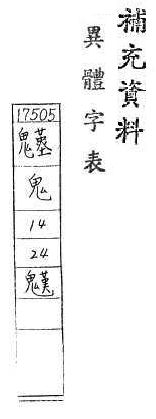 補充資料
異體字表
17505
鬼
14
24